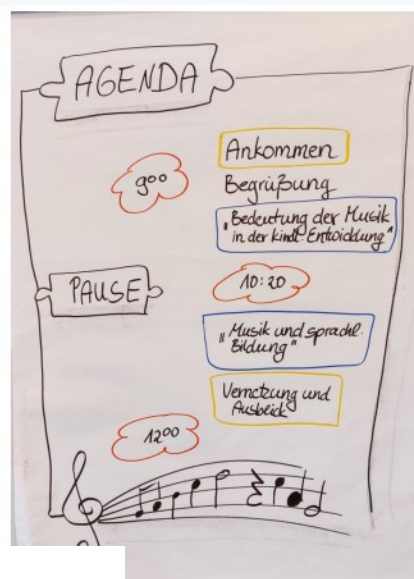 AGENDA
Ankommen
9⁰⁰
Begrüßung
"Bedeutung der Musik
in der kindl. Entwicklung"
PAUSE
10:20
"Musik und sprachl.
Bildung"
Vernetzung und
Ausblick
12⁰⁰